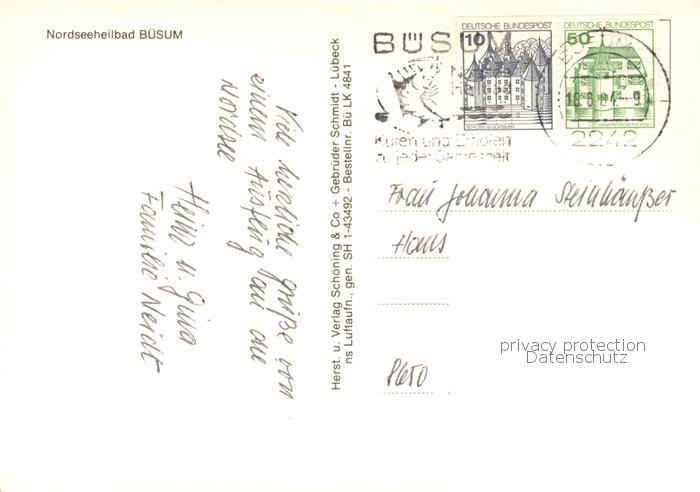 Nordseeheilbad BÜSUM
Viele herzliche Grüße von
einem Ausflug an die
Nordsee
Heinz u. Gina
Familie Neidt
Herst. u. Verlag Schöning & Co + Gebrüder Schmidt - Lübeck
ns Luftaufn., gen. SH 1-43492 - Bestellnr. Bü LK 4841
BÜSUM
Kuren und Erholen
zu jeder Jahreszeit
DEUTSCHE BUNDESPOST
10
SCHLOSS GLÜCKSBURG
DEUTSCHE BUNDESPOST
50
2242
Frau Johanna Steinhäußer
Haus
8650
privacy protection
Datenschutz